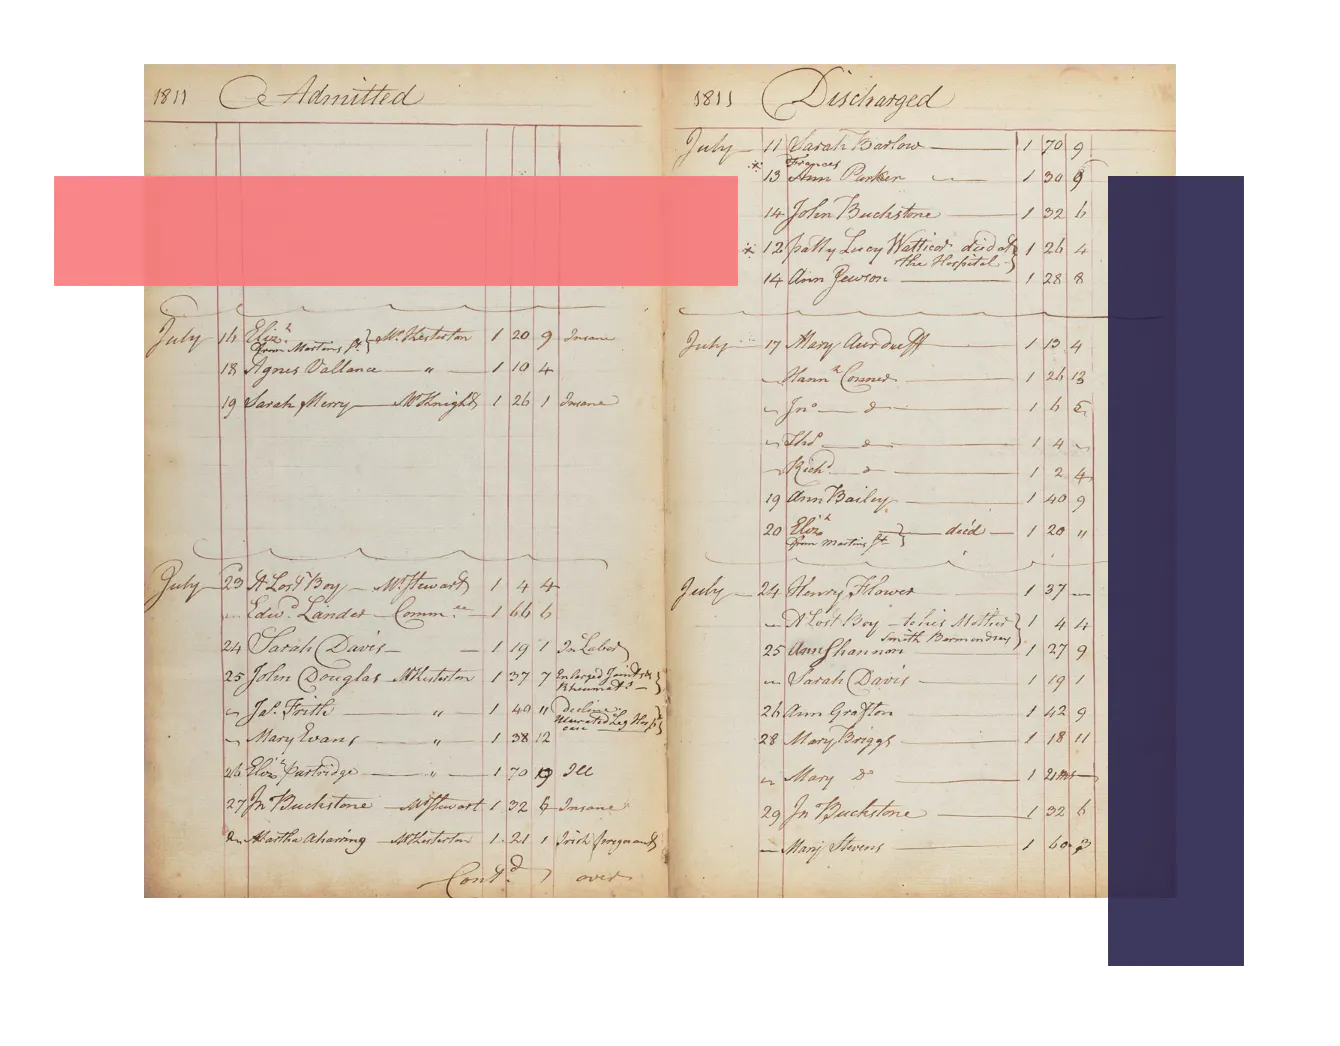 1811 Admitted
July 16 Eliz.h from Martins St. } Mr. Hesterton 1 20 9 Insane
18 Agnes Vallance — " — 1 10 4
19 Sarah Merry — McKnight 1 26 1 Insane
July 23 A Lost Boy — Mr. Stewart 1 4 4
Edw.d Lander — Comm.ee — 1 66 6
24 Sarah Davis — — 1 19 1 In Labor
25 John Douglas Mr. Hesterton 1 37 7 Enlarged Joints & Rheumat.s
Jas. Frith — " — 1 40 " decline Ulcerated Leg Hosp.l case
Mary Evans — " — 1 38 12
26 Eliz.h Partridge — " — 1 70 9 Ill
27 Jn Buckstone — Mr. Stewart 1 32 6 Insane
Do Martha Aharring — Mr. Hesterton 1 21 1 Irish pregnant
Cont.d over
1811 Discharged
July 11 Sarah Barlow — 1 70 9
Frances
* 13 Ann Parker — 1 30 9
14 John Buckstone — 1 32 6
* 12 Patty Lucy died at 1 26 4
the Hospital
14 Ann — 1 28 8
July 17 Mary — 1 13 4
Hann.h Conner — 1 26 13
Jn.o do — 1 6 5
Tho.s do — 1 4 "
Rich.d do — 1 2 4
19 Ann Bailey — 1 40 9
20 Eliz.h from Martins St. } — died — 1 20 "
July 24 Henry Flower — 1 37 —
A Lost Boy — to his Mother 1 4 4
Smith Bermondsey
25 Ann Shannon — 1 27 9
Sarah Davis — 1 19 1
26 Ann Grafton — 1 42 9
28 Mary Briggs — 1 18 11
Mary Do — 1 2 ms —
29 Jn Buckstone — 1 32 6
Mary Stevens — 1 60 3